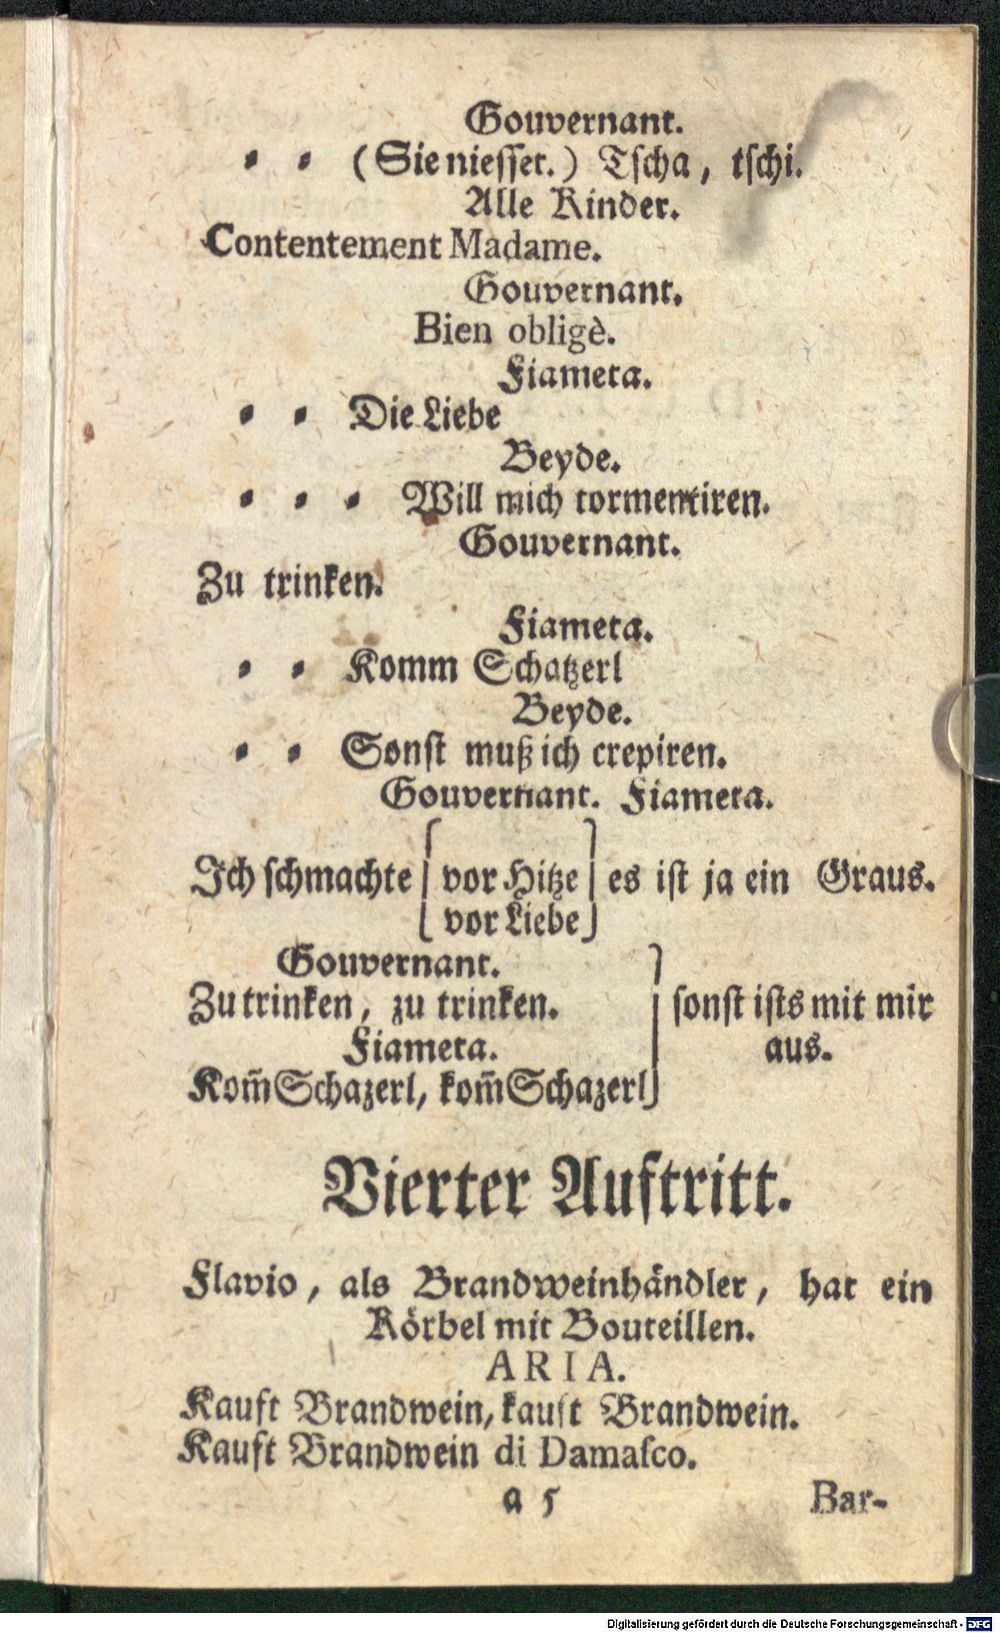 Gouvernant.
⸗ ⸗ (Sie niesset.) Tscha, tschi.
Alle Kinder.
Contentement Madame.
Gouvernant.
Bien obligè.
Fiameta.
⸗ ⸗ Die Liebe
Beyde.
⸗ ⸗ ⸗ Will mich tormentiren.
Gouvernant.
Zu trinken.
Fiameta.
⸗ ⸗ Komm Schatzerl
Beyde.
⸗ ⸗ Sonst muß ich crepiren.
Gouvernant. Fiameta.
Ich schmachte { vor Hitze } es ist ja ein Graus.
vor Liebe
Gouvernant.
Zu trinken, zu trinken. } sonst ists mit mir
Fiameta. aus.
Kom̃ Schazerl, kom̃ Schazerl
Vierter Auftritt.
Flavio, als Brandweinhändler, hat ein
Körbel mit Bouteillen.
ARIA.
Kauft Brandwein, kauft Brandwein.
Kauft Brandwein di Damaſco.
a 5 Bar-
Digitalisierung gefördert durch die Deutsche Forschungsgemeinschaft - DFG